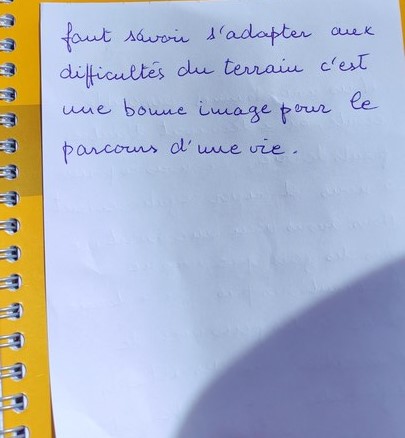 faut savoir s'adapter aux
difficultés du terrain c'est
une bonne image pour le
parcours d'une vie.